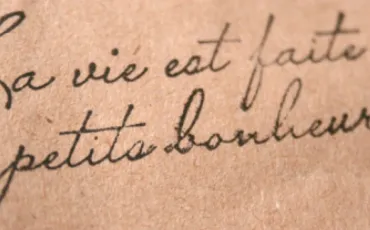 La vie est faite
petits bonheur